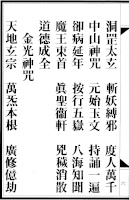 洞罡太玄 斬妖縛邪 度人萬千
中山神咒 元始玉文 持誦一遍
卻病延年 按行五嶽 八海知聞
魔王束首 眞聖衛軒 兇穢消散
道德成全
金光神咒
天地玄宗 萬炁本根 廣修億劫